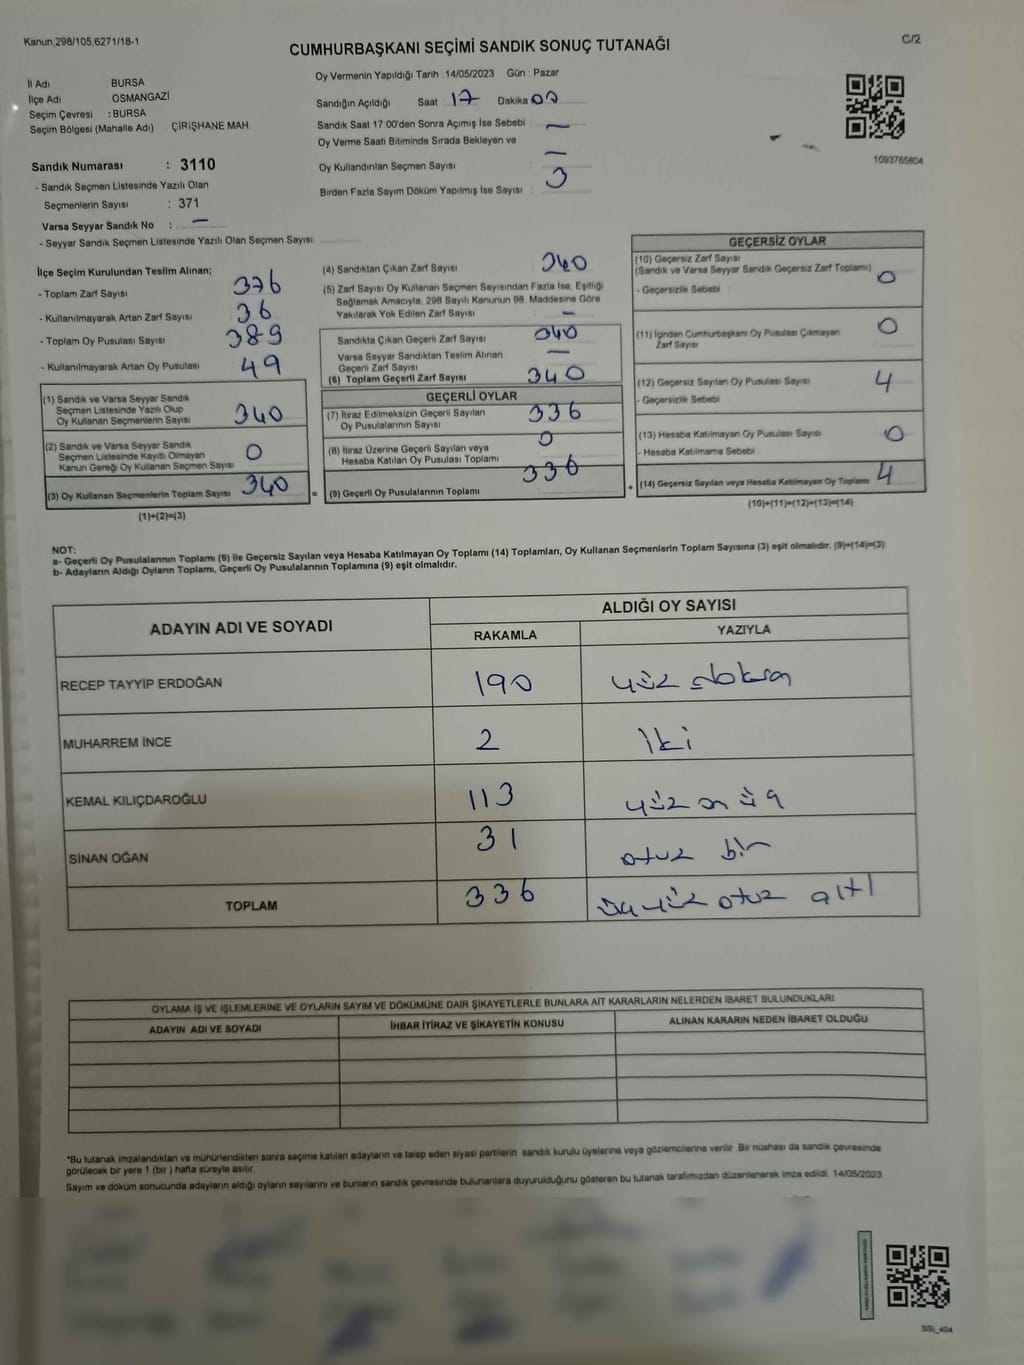 Kanun,298/105,6271/18-1
C/2
CUMHURBAŞKANI SEÇİMİ SANDIK SONUÇ TUTANAĞI
İl Adı : BURSA
İlçe Adı : OSMANGAZİ
Seçim Çevresi : BURSA
Seçim Bölgesi (Mahalle Adı) : ÇİRİŞHANE MAH.
Sandık Numarası : 3110
- Sandık Seçmen Listesinde Yazılı Olan
Seçmenlerin Sayısı : 371
Varsa Seyyar Sandık No : —
- Seyyar Sandık Seçmen Listesinde Yazılı Olan Seçmen Sayısı:
Oy Vermenin Yapıldığı Tarih : 14/05/2023 Gün : Pazar
Sandığın Açıldığı Saat 17 Dakika 00
Sandık Saat 17:00'den Sonra Açımış İse Sebebi : —
Oy Verme Saati Bitiminde Sırada Bekleyen ve
Oy Kullandırılan Seçmen Sayısı : —
Birden Fazla Sayım Döküm Yapılmış İse Sayısı : 3
1093765804
İlçe Seçim Kurulundan Teslim Alınan;
- Toplam Zarf Sayısı 376
- Kullanılmayarak Artan Zarf Sayısı 36
- Toplam Oy Pusulası Sayısı 389
- Kullanılmayarak Artan Oy Pusulası 49
(1) Sandık ve Varsa Seyyar Sandık
Seçmen Listesinde Yazılı Olup
Oy Kullanan Seçmenlerin Sayısı 340
(2) Sandık ve Varsa Seyyar Sandık
Seçmen Listesinde Kayıtlı Olmayan
Kanun Gereği Oy Kullanan Seçmen Sayısı 0
(3) Oy Kullanan Seçmenlerin Toplam Sayısı 340
(1)+(2)=(3)
(4) Sandıktan Çıkan Zarf Sayısı 340
(5) Zarf Sayısı Oy Kullanan Seçmen Sayısından Fazla İse, Eşitliği
Sağlamak Amacıyla, 298 Sayılı Kanunun 98. Maddesine Göre
Yakılarak Yok Edilen Zarf Sayısı —
Sandıkta Çıkan Geçerli Zarf Sayısı 340
Varsa Seyyar Sandıktan Teslim Alınan
Geçerli Zarf Sayısı —
(6) Toplam Geçerli Zarf Sayısı 340
GEÇERLİ OYLAR
(7) İtiraz Edilmeksizin Geçerli Sayılan
Oy Pusulalarının Sayısı 336
(8) İtiraz Üzerine Geçerli Sayılan veya
Hesaba Katılan Oy Pusulası Toplamı 0
= (9) Geçerli Oy Pusulalarının Toplamı 336
GEÇERSİZ OYLAR
(10) Geçersiz Zarf Sayısı
(Sandık ve Varsa Seyyar Sandık Geçersiz Zarf Toplamı) 0
- Geçersizlik Sebebi
(11) İçinden Cumhurbaşkanı Oy Pusulası Çıkmayan
Zarf Sayısı 0
(12) Geçersiz Sayılan Oy Pusulası Sayısı 4
- Geçersizlik Sebebi
(13) Hesaba Katılmayan Oy Pusulası Sayısı 0
- Hesaba Katılmama Sebebi
+ (14) Geçersiz Sayılan veya Hesaba Katılmayan Oy Toplamı 4
(10)+(11)+(12)+(13)=(14)
NOT:
a- Geçerli Oy Pusulalarının Toplamı (9) ile Geçersiz Sayılan veya Hesaba Katılmayan Oy Toplamı (14) Toplamları, Oy Kullanan Seçmenlerin Toplam Sayısına (3) eşit olmalıdır. (9)+(14)=(3)
b- Adayların Aldığı Oyların Toplamı, Geçerli Oy Pusulalarının Toplamına (9) eşit olmalıdır.
ADAYIN ADI VE SOYADI
ALDIĞI OY SAYISI
RAKAMLA
YAZIYLA
RECEP TAYYİP ERDOĞAN 190 yüz doksan
MUHARREM İNCE 2 iki
KEMAL KILIÇDAROĞLU 113 yüz on üç
SİNAN OĞAN 31 otuz bir
TOPLAM 336 üç yüz otuz altı
OYLAMA İŞ VE İŞLEMLERİNE VE OYLARIN SAYIM VE DÖKÜMÜNE DAİR ŞİKAYETLERLE BUNLARA AİT KARARLARIN NELERDEN İBARET BULUNDUKLARI
ADAYIN ADI VE SOYADI
İHBAR İTİRAZ VE ŞİKAYETİN KONUSU
ALINAN KARARIN NEDEN İBARET OLDUĞU
*Bu tutanak imzalandıktan ve mühürlendikten sonra seçime katılan adayların ve talep eden siyasi partilerin sandık kurulu üyelerine veya gözlemcilerine verilir. Bir nüshası da sandık çevresinde
görülecek bir yere 1 (bir ) hafta süreyle asılır.
Sayım ve döküm sonucunda adayların aldığı oyların sayılarını ve bunların sandık çevresinde bulunanlara duyurulduğunu gösteren bu tutanak tarafımızdan düzenlenerek imza edildi. 14/05/2023